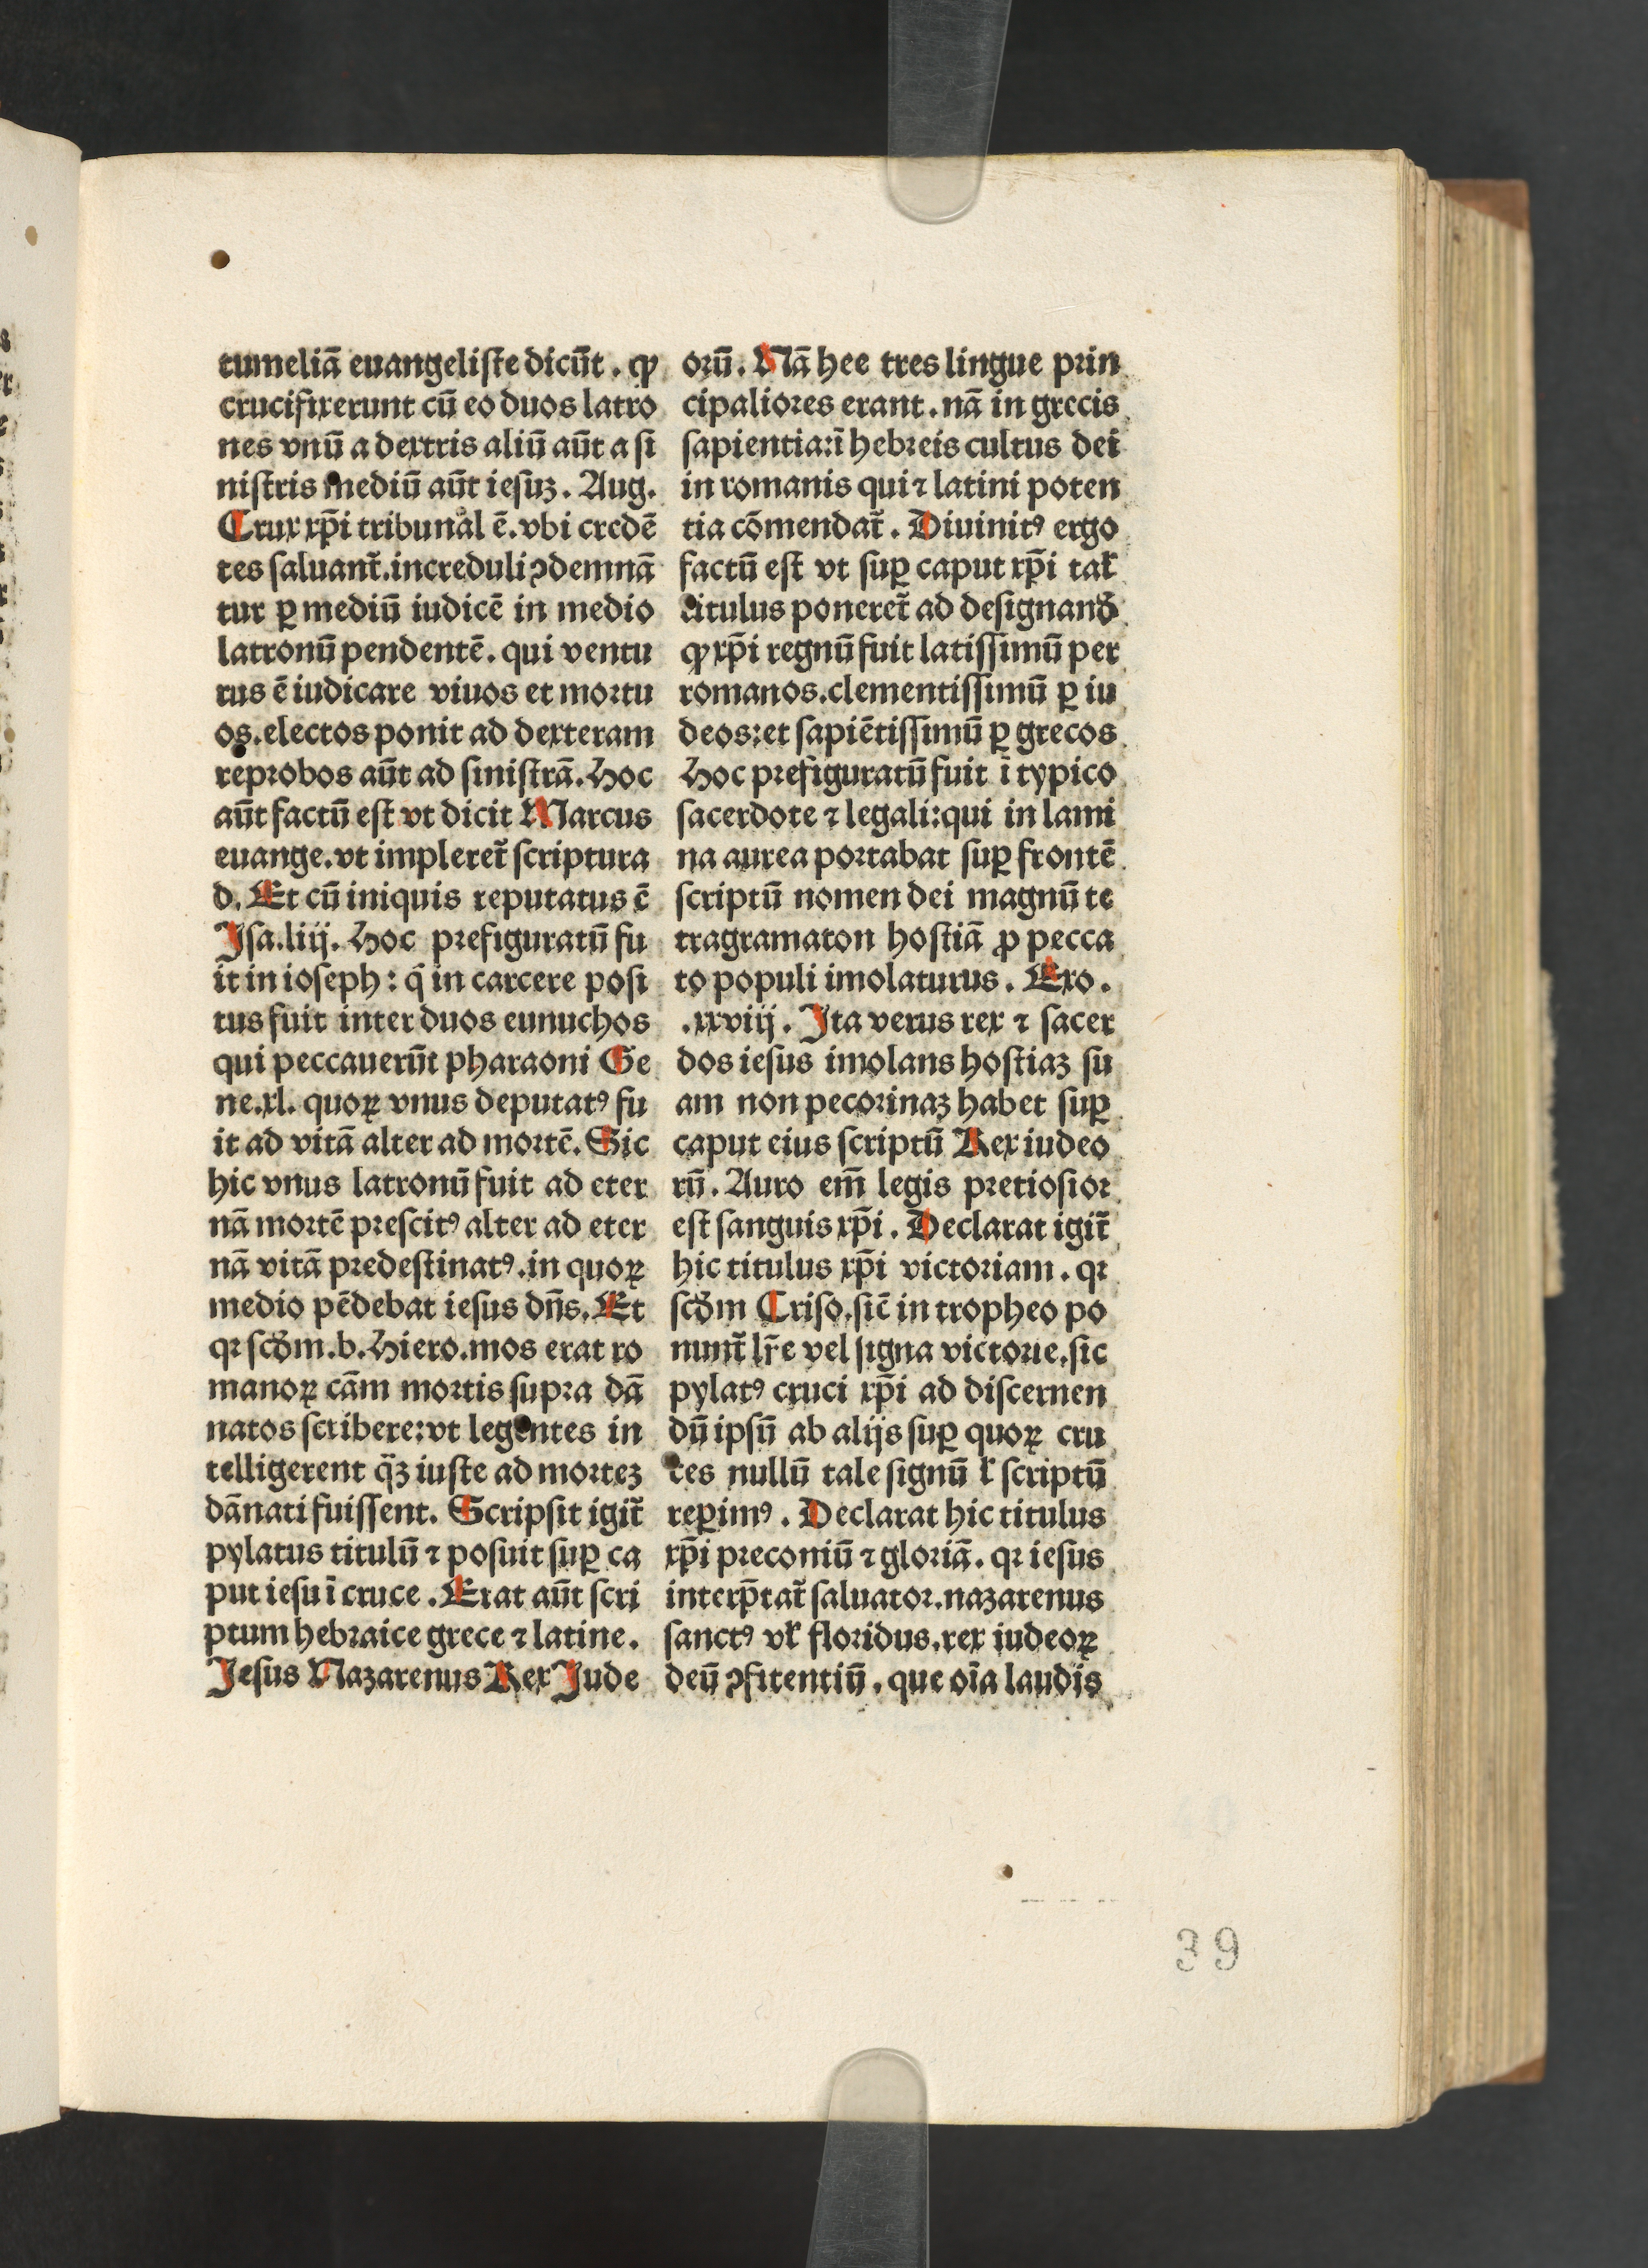 tumeliā euangeliste dicūt . ꝙ
crucifixerunt cū eo duos latro
nes vnū a dextris aliū aūt a si
nistris mediū aūt iesuʒ. Aug.
Crux xp̄i tribunal ē. vbi credē
tes saluant᷑. increduli ꝯdemnā
tur ꝑ mediū iudicē in medio
latronū pendentē. qui ventu
rus ē iudicare viuos et mortu
os. electos ponit ad dexteram
reprobos aūt ad sinistrā. Hoc
aūt factū est vt dicit Marcus
euange. vt impleret᷑ scriptura
d. Et cū iniquis reputatus ē
Isa. liij. Hoc prefiguratū fu
it in ioseph : q̄ in carcere posi
tus fuit inter duos eunuchos
qui peccauerūt pharaoni Ge
ne. xl. quoꝝ vnus deputatꝰ fu
it ad vitā alter ad mortē. Sic
hic vnus latronū fuit ad eter
nā mortē prescitꝰ alter ad eter
nā vitā predestinatꝰ. in quoꝝ
medio pēdebat iesus dn̄s. Et
qꝛ scḋm. b. Hiero. mos erat ro
manoꝝ cām mortis supra dā
natos scribere: vt legentes in
telligerent q̄ʒ iuste ad morteʒ
dānati fuissent. Scripsit igit᷑
pylatus titulū ⁊ posuit suꝑ ca
put iesu ī cruce . Erat aūt scri
ptum hebraice grece ⁊ latine.
Jesus Nazarenus Rex Jude
orū. Nā hee tres lingue prin
cipaliores erant. nā in grecis
sapientia: ī hebreis cultus dei
in romanis qui ⁊ latini poten
tia cōmendat᷑. Diuinitꝰ ergo
factū est vt suꝑ caput xp̄i tał
titulus poneret᷑ ad designanḋ
ꝙ xp̄i regnū fuit latissimū per
romanos. clementissimū ꝑ iu
deos: et sapiētissimū ꝑ grecos
Hoc prefiguratū fuit ī typico
sacerdote ⁊ legali: qui in lami
na aurea portabat suꝑ frontē
scriptū nomen dei magnū te
tragramaton hostiā ꝓ pecca
to populi imolaturus . Exo.
.xxviij. Ita verus rex ⁊ sacer
dos iesus imolans hostiaʒ su
am non pecorinaʒ habet suꝑ
caput eius scriptū Rex iudeo
rū. Auro em̄ legis pretiosior
est sanguis xp̄i. Declarat igit᷑
hic titulus xp̄i victoriam. qꝛ
scḋm Criso. sic̄ in tropheo po
nunt᷑ lr̄e vel signa victorie. sic
pylatꝰ cruci xp̄i ad discernen
dū ipsū ab alijs suꝑ quoꝝ cru
ces nullū tale signū ł scriptū
reꝑimꝰ . Declarat hic titulus
xp̄i preconiū ⁊ gloriā. qꝛ iesus
interp̄tat᷑ saluator. nazarenus
sanctꝰ vł floridus. rex iudeoꝝ
deū ꝯfitentiū. que oīa laudis
39